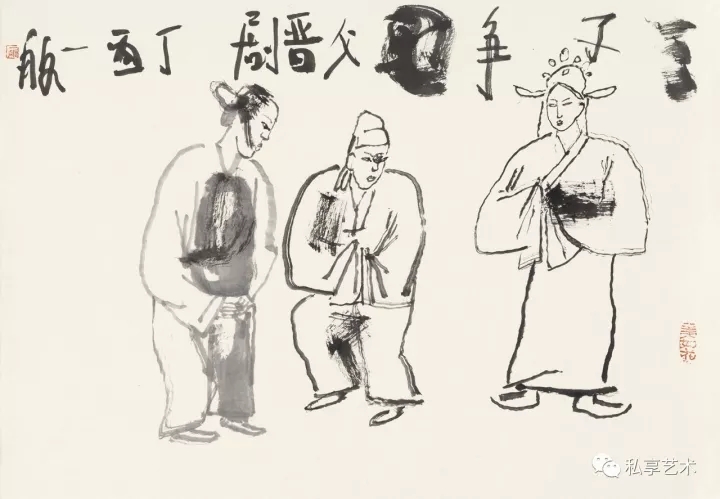 三子争父晋剧丁酉一航
私享艺术